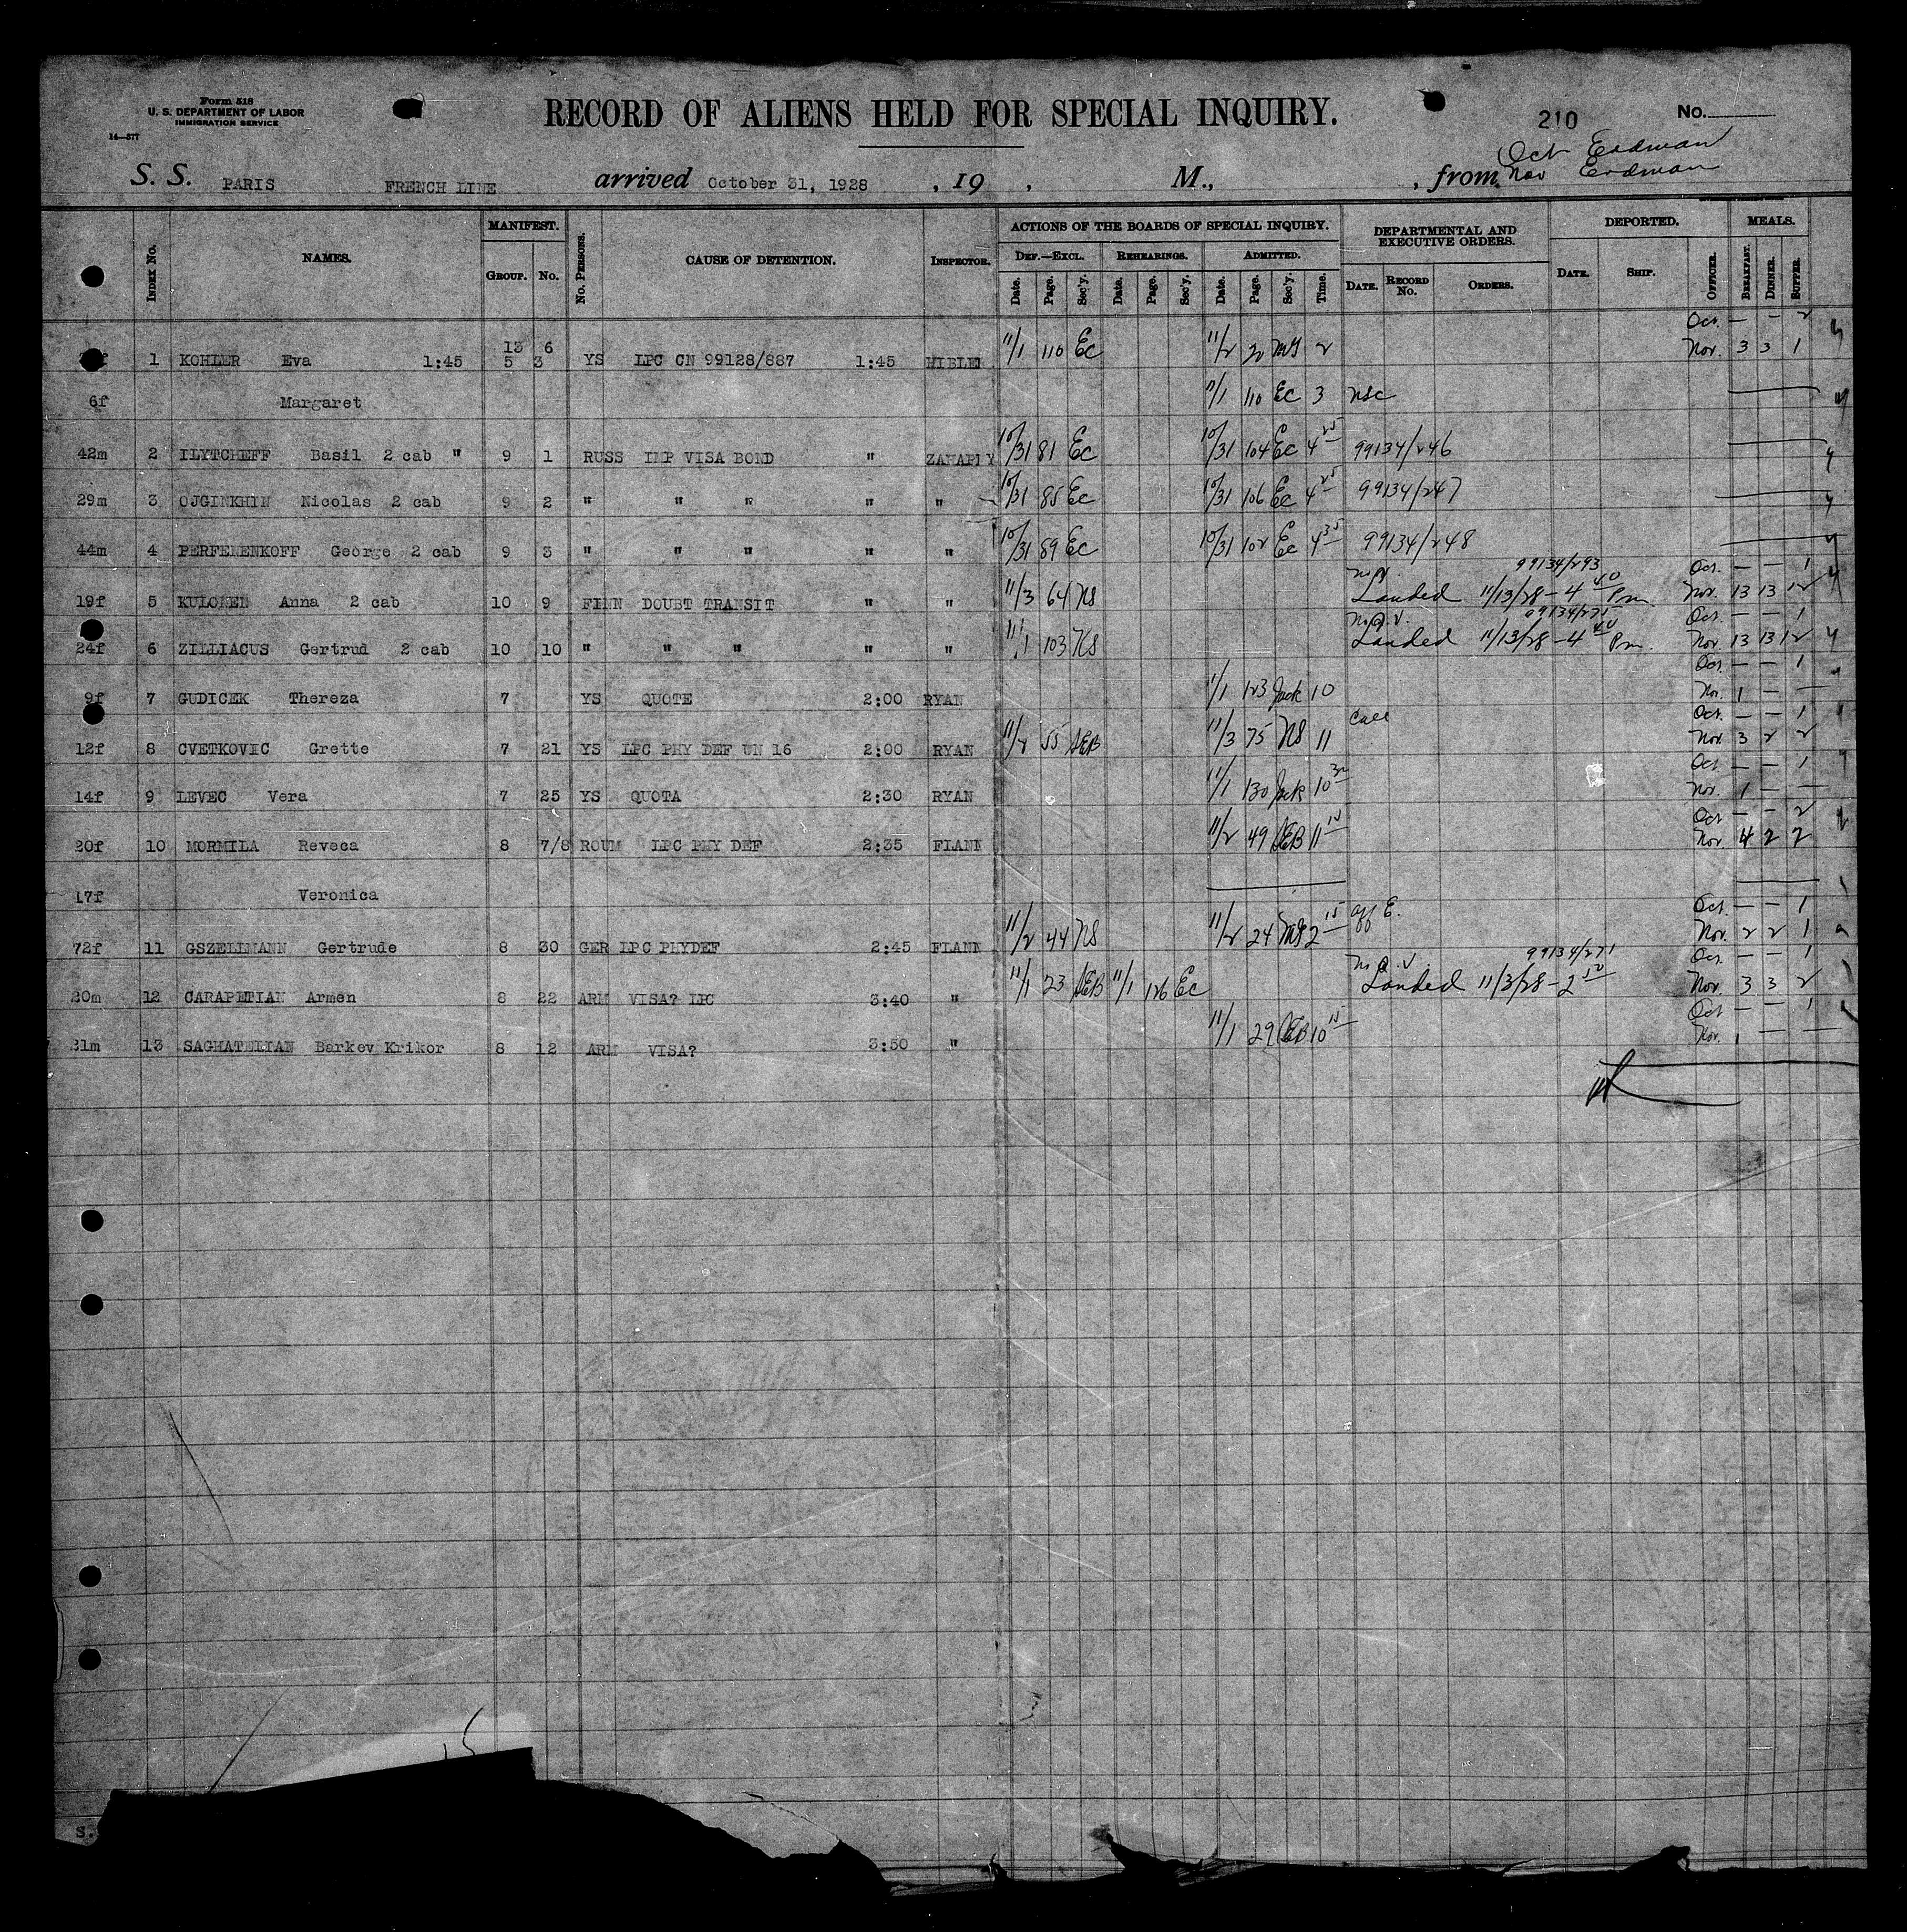 Form 518
U. S. DEPARTMENT OF LABOR
IMMIGRATION SERVICE
14—577
RECORD OF ALIENS HELD FOR SPECIAL INQUIRY.
210 No.
Oct Erdman
S. S. PARIS FRENCH LINE arrived October 31, 1928 , 19 , M., , from Nov Erdman
INDEX NO. NAMES. MANIFEST. GROUP. NO. NO. PERSONS. CAUSE OF DETENTION. INSPECTOR. ACTIONS OF THE BOARDS OF SPECIAL INQUIRY. DEF.—EXCL. Date. Page. Sec'y. REHEARINGS. Date. Page. Sec'y. ADMITTED. Date. Page. Sec'y. Time. DEPARTMENTAL AND EXECUTIVE ORDERS. DATE. RECORD NO. ORDERS. DEPORTED. DATE. SHIP. OFFICER. MEALS. BREAKFAST. DINNER. SUPPER.
13 6 Oct. — — 2
1 KOHLER Eva 1:45 5 3 YS LPC CN 99128/887 1:45 11/1 110 Ec 11/2 20 MG 2 Nov. 3 3 1
6f Margaret 11/1 110 Ec 3 NSC
42m 2 ILYTCHEFF Basil 2 cab " 9 1 RUSS IMP VISA BOND " 10/31 81 Ec 10/31 104 Ec 4 25 99134/246
29m 3 OJGINKHIN Nicolas 2 cab 9 2 " " " " " 10/31 85 Ec 10/31 106 Ec 4 25 99134/247
44m 4 PERFEMENKOFF George 2 cab 9 3 " " " " " 10/31 89 Ec 10/31 102 Ec 4 35 99134/248
99134/293 Oct. — — 1
19f 5 KULONEN Anna 2 cab 10 9 FINN DOUBT TRANSIT " " 11/3 64 NS Landed 11/13/28 - 4 40 Pm. Nov. 13 13 12
99134/275 Oct. — — 1
24f 6 ZILLIACUS Gertrud 2 cab 10 10 " " " " " 11/1 103 NS Landed 11/13/28 - 4 40 Pm. Nov. 13 13 12
Oct. — — 1
9f 7 GUDICEK Thereza 7 YS QUOTE 2:00 RYAN 11/1 123 Jack 10 Nov. 1 — —
Oct. — — 1
12f 8 CVETKOVIC Grette 7 21 YS LPC PHY DEF UN 16 2:00 RYAN 11/2 55 SEB 11/3 75 NS 11 Nov. 3 2 2
Oct. — — 1
14f 9 LEVEC Vera 7 25 YS QUOTA 2:30 RYAN 11/1 130 Jack 10 30 Nov. 1 — —
Oct — — 2
20f 10 MORMILA Reveca 8 7/8 ROUM LPC PHY DEF 2:35 FLANN 11/2 49 SEB 11 10 Nov. 4 2 2
17f Veronica
Oct. — — 1
72f 11 GSZELLMANN Gertrude 8 30 GER LPC PHYDEF 2:45 FLANN 11/2 44 NS 11/2 24 MG 2 15 Aff E. Nov. 2 2 1
99134/271 Oct. — — 1
20m 12 CARAPETIAN Armen 8 22 ARM VISA? LPC 3:40 " 11/1 23 SEB 11/1 126 Ec Landed 11/3/28 - 2 50 Nov. 3 3 2
Oct — — 1
31m 13 SAGHATELIAN Barkev Krikor 8 12 ARM VISA? 3:50 " 11/1 29 SEB 10 15 Nov. 1 — —
15
S.